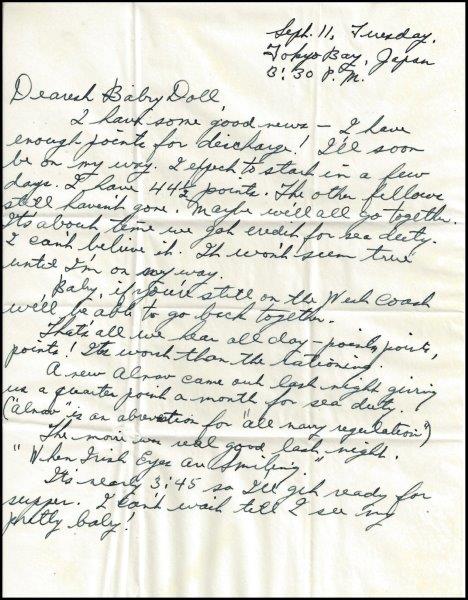 Sept. 11, Tuesday.
Tokyo Bay, Japan
3:30 P.M.
Dearest Baby Doll,
I have some good news — I have
enough points for discharge! I'll soon
be on my way. I expect to start in a few
days. I have 44½ points. The other fellows
still haven't gone. Maybe we'll all go together.
It's about time we got credit for sea duty.
I can't believe it. It won't seem true
until I'm on my way.
Baby, if you're still on the West Coast
we'll be able to go back together.
That's all we hear all day — points, points,
points! It's worse than the rationing.
A new Alnav came out last night giving
us a quarter point a month for sea duty.
("Alnav" is an abreviation for "all navy regulation")
The movie was real good last night.
"When Irish Eyes are Smiling."
It's nearly 3:45 so I'll get ready for
supper. I can't wait till I see my
pretty baby!